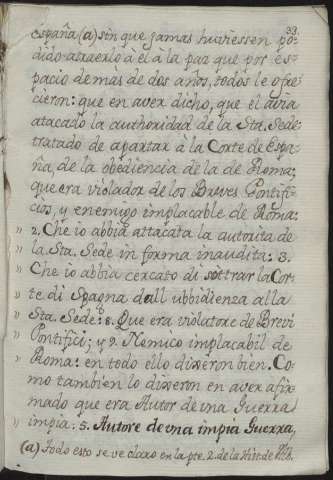 33.
España (a) sin que jamas huviessen po-
dido atraerlo à èl à la paz que por es-
pacio de mas de dos años, todos le ofre-
cieron: que en aver dicho, que èl avia
atacado la authoridad de la Sta. Sede:
tratado de apartar à la Corte de Espa-
ña, de la obediencia de la de Roma;
que era violador de los Breves Pontifi-
cios, y enemigo implacable de Roma:
" 2. Che io abbia attacata la autorita de
" la Sta. Sede in forma inaudita: 3.
" Che io abbia cercato di sottrar la Cor-
" te di Spagna dall ubbidienza alla
" Sta. Sede: 8. Que era violatore de Brevi
" Pontifici; y 9. Nemico implacabil de
" Roma: en todo ello dixeron bien. Co-
mo tambien lo dixeron en aver afir-
mado que era Autor de una Guerra
impia: 5. Autore de una impia Guerra,
(a) Todo esto se ve claro en la pte. 2. de la Hist. de Alb.